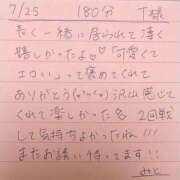 7/25 180分 T様
長く一緒に居られて凄く
嬉しかったよ♡「可愛くて
エロい」って褒めてくれて
ありがとう(>ω<)沢山感じて
くれて楽しかったな 2回戦
して気持ちよかったね!!!
またお誘い待ってます!!
みと